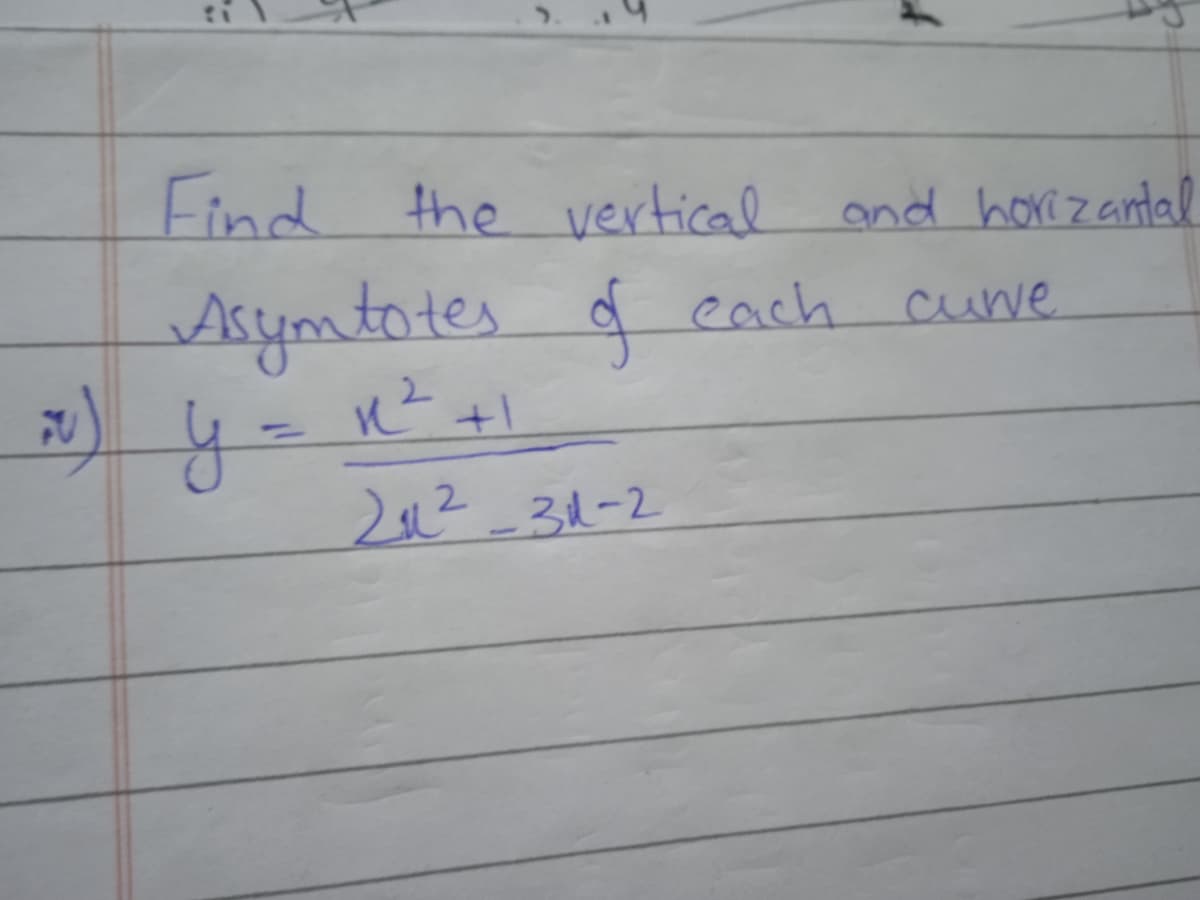 Find the vertical and horizantal
Asymtotes of each curve
iv) y = x² +1
2x² - 3x - 2